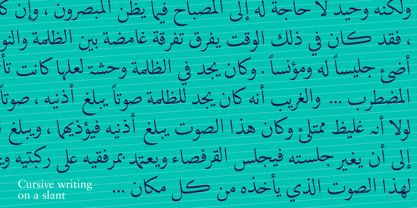 ولكنه وحيد لا حاجة له إلى المصباح فيما يظن المبصرون ، وإن كا
، فقد كان في ذلك الوقت يفرق تفرقة غامضة بين الظلمة والنو
أضئ جليساً له ومؤنساً ، وكان يجد في الظلمة وحشة لعلها كانت تأ
المضطرب ... والغريب أنه كان يجد للظلمة صوتاً يبلغ أذنيه ، صوتاً
لولا أنه غليظ ممتلئ وكان هذا الصوت يبلغ أذنيه فيؤذيهما ، ويبلغ
إلى أن يغير جلسته فيجلس القرفصاء ويعتمد بمرفقيه على ركبتيه وي
لهذا الصوت الذي يأخذه من كل مكان ...
Cursive writing
on a slant